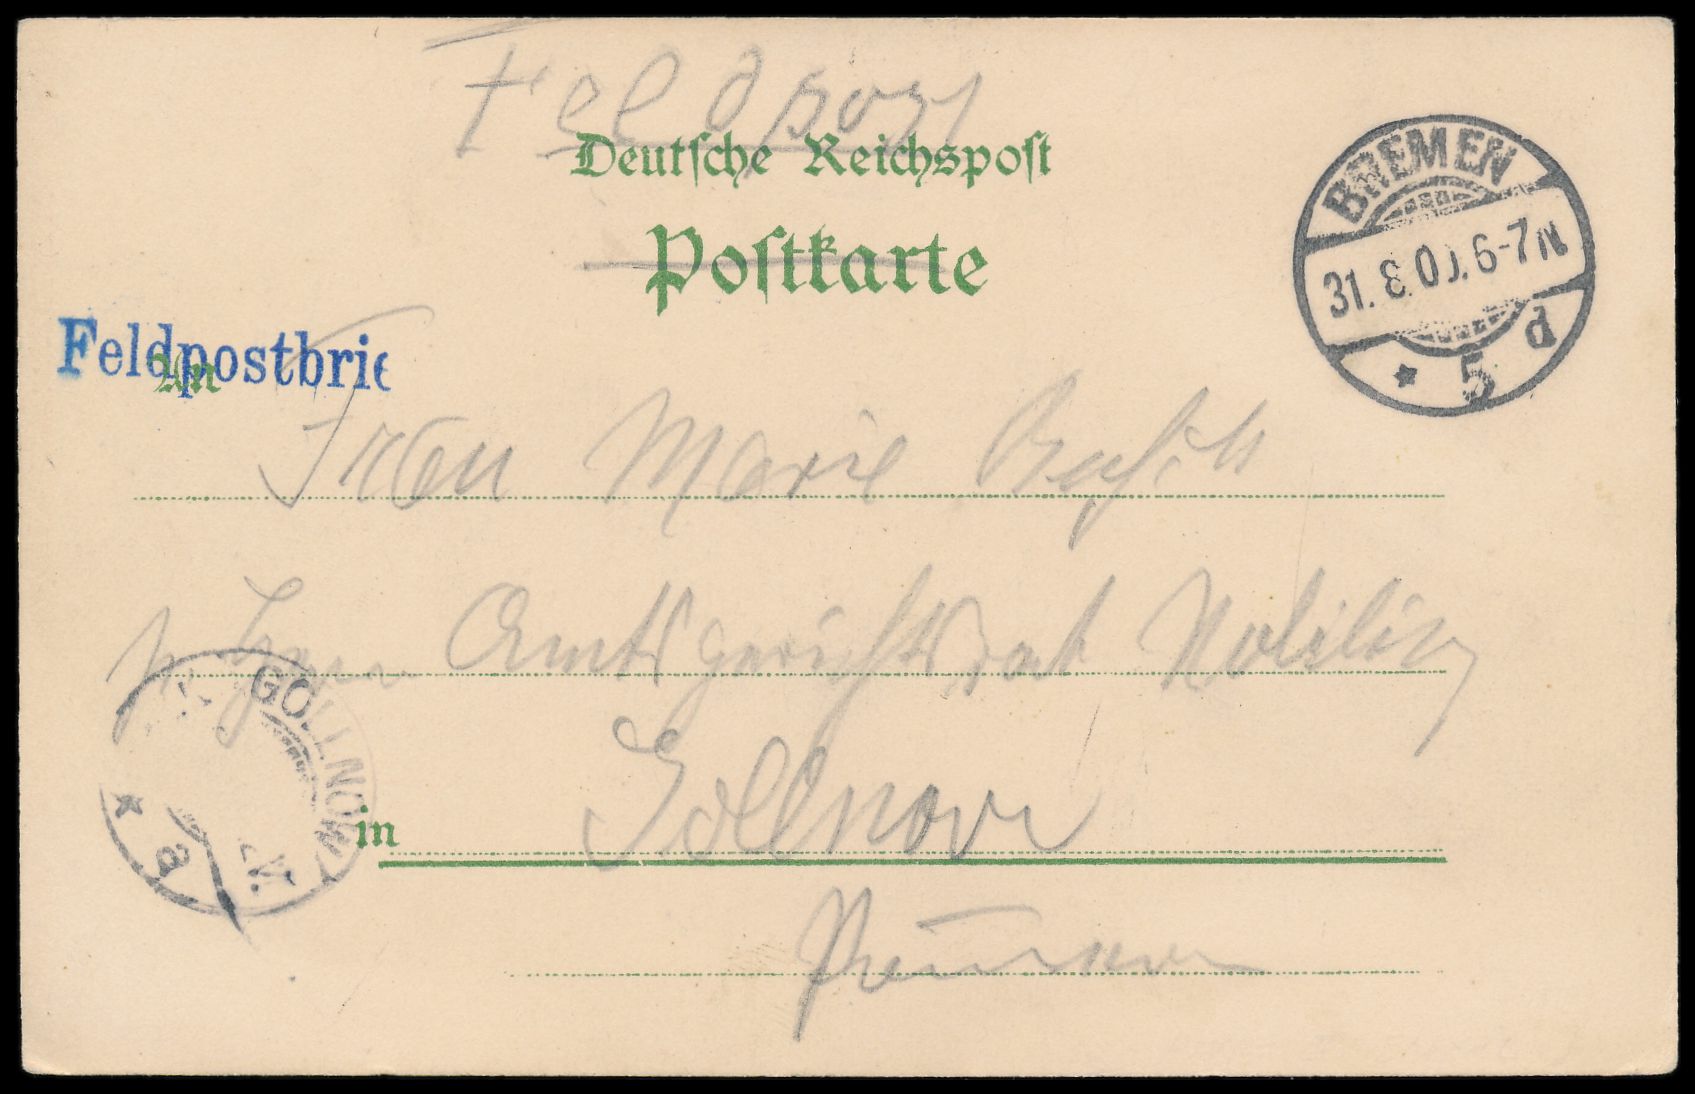 Feldpost
Deutsche Reichspost
Postkarte
BREMEN
31.8.00.6-7N
* 5 d
Feldpostbrie
An
Frau Marie
p. Herrn Amtsgerichtsrat
GOLLNOW
* a
V.
in Gollnow
Pommern